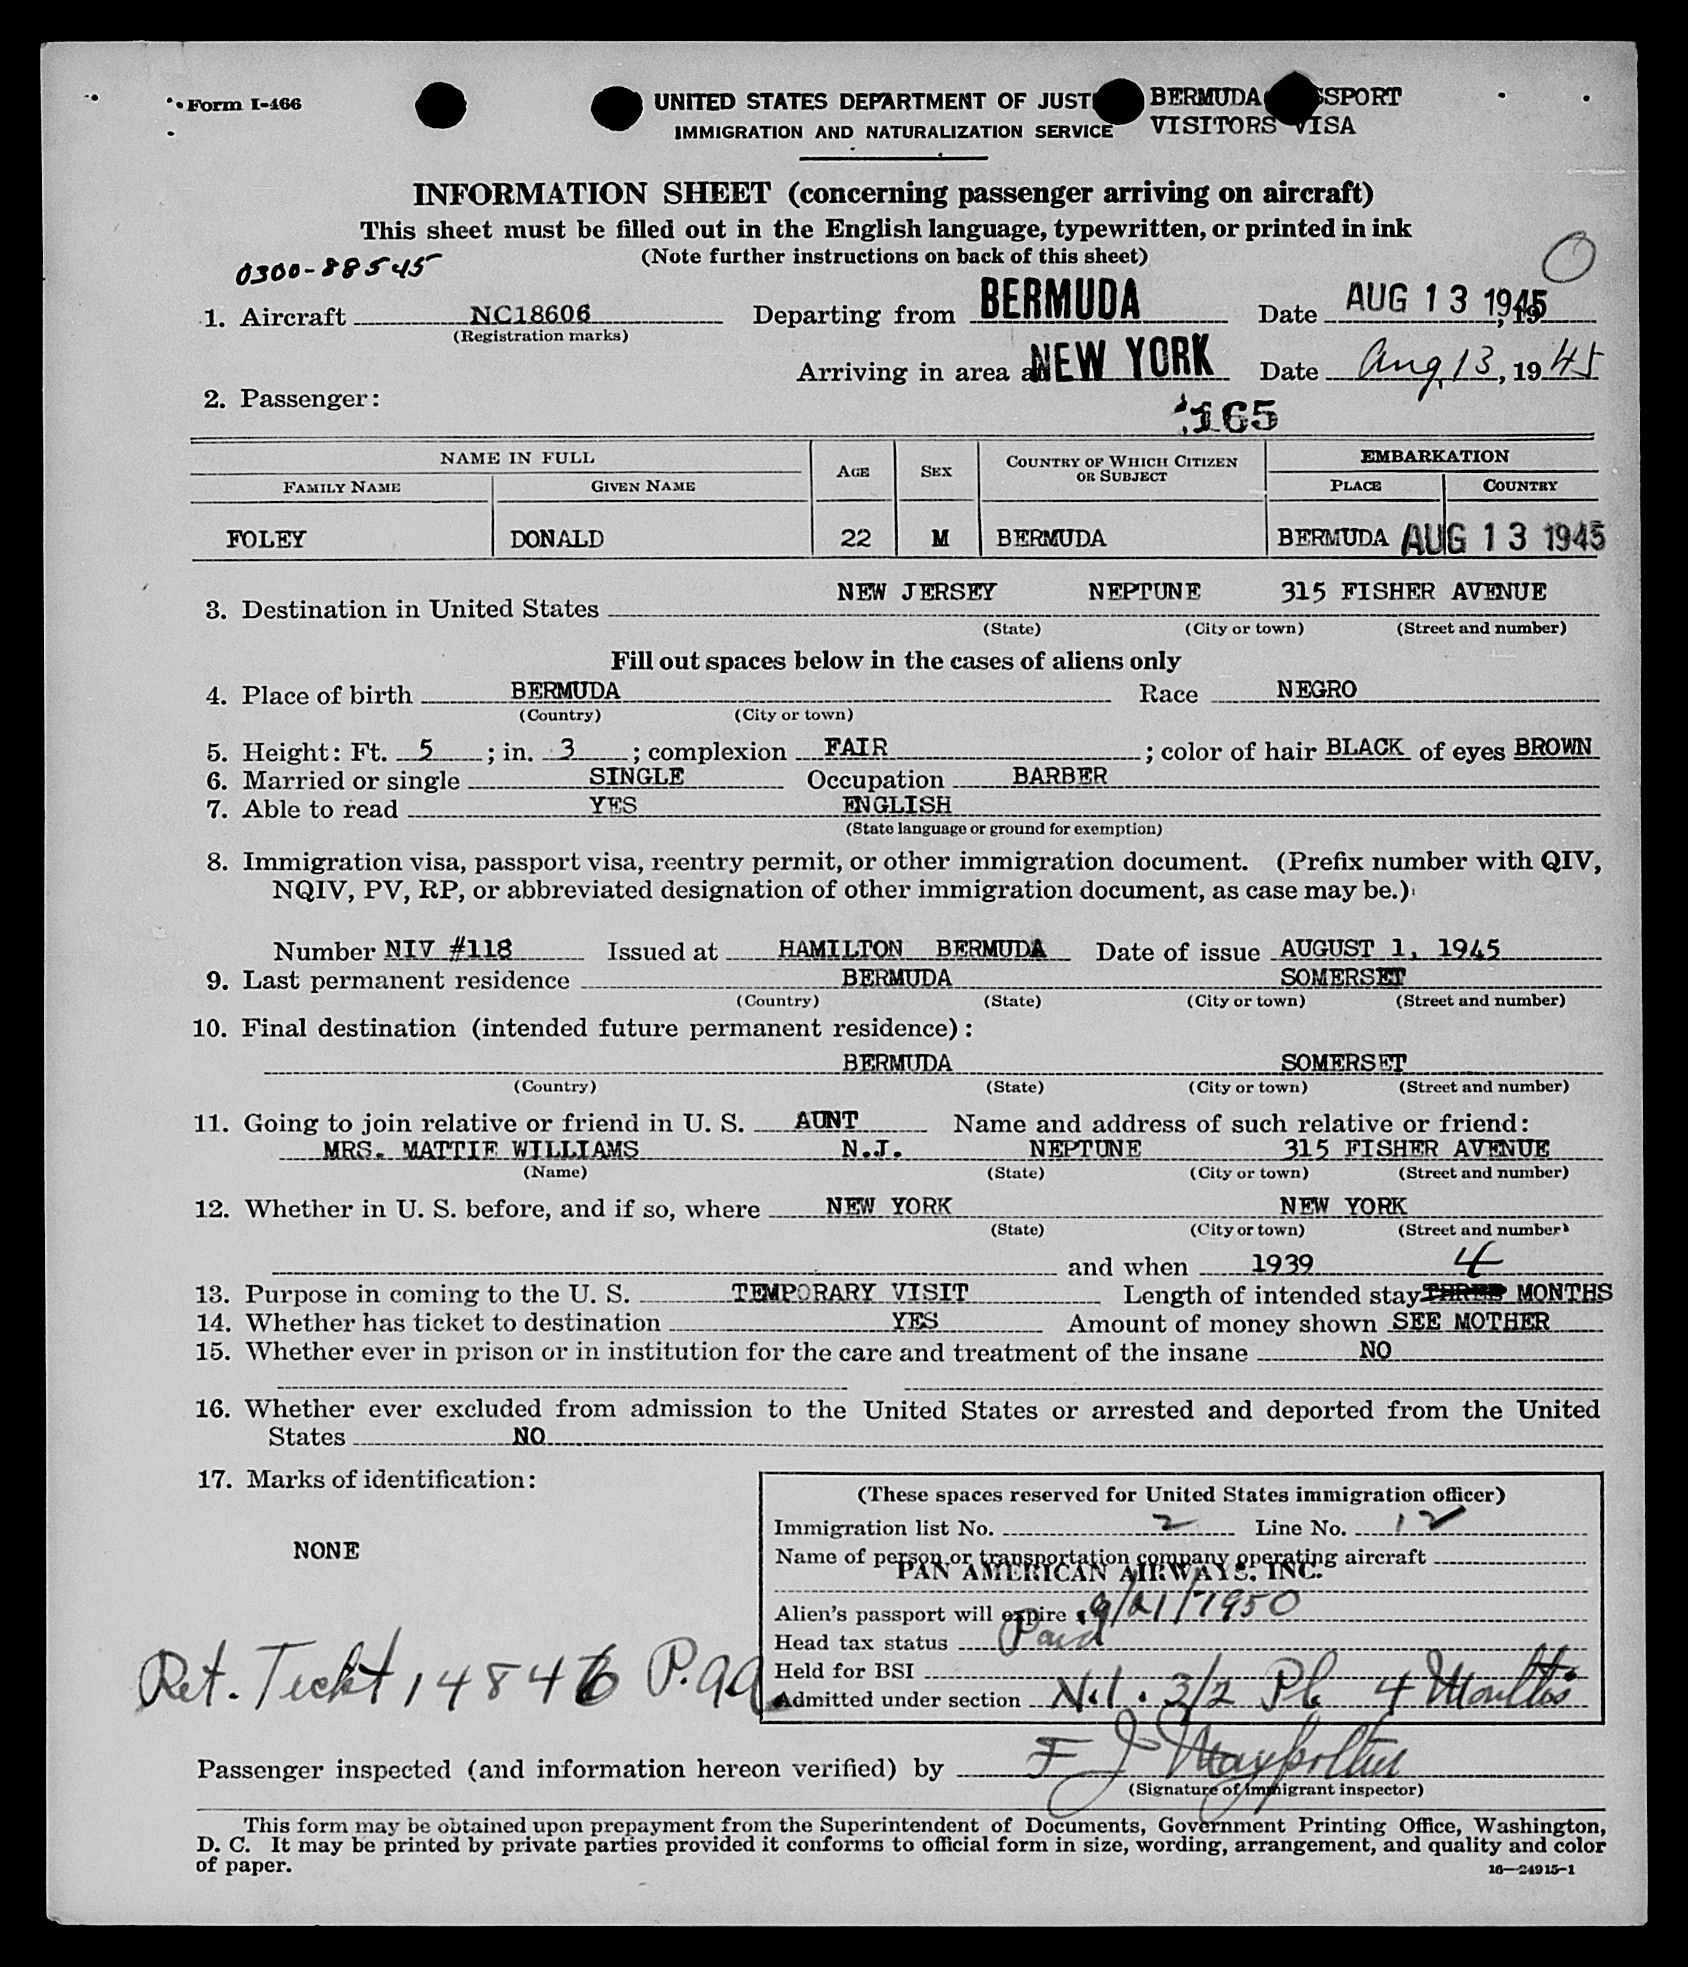 Form I-466
UNITED STATES DEPARTMENT OF JUST
IMMIGRATION AND NATURALIZATION SERVICE
BERMUDA SSPORT
VISITORS VISA
INFORMATION SHEET (concerning passenger arriving on aircraft)
This sheet must be filled out in the English language, typewritten, or printed in ink
(Note further instructions on back of this sheet)
0300-88545
O
1. Aircraft NC18606 Departing from BERMUDA Date AUG 13 1945, 19
(Registration marks)
Arriving in area at NEW YORK Date Aug 13, 1945
2. Passenger:
165
NAME IN FULL AGE SEX COUNTRY OF WHICH CITIZEN OR SUBJECT EMBARKATION
FAMILY NAME GIVEN NAME PLACE COUNTRY
FOLEY DONALD 22 M BERMUDA BERMUDA AUG 13 1945
NEW JERSEY NEPTUNE 315 FISHER AVENUE
3. Destination in United States
(State) (City or town) (Street and number)
Fill out spaces below in the cases of aliens only
4. Place of birth BERMUDA Race NEGRO
(Country) (City or town)
5. Height: Ft. 5; in. 3; complexion FAIR; color of hair BLACK of eyes BROWN
6. Married or single SINGLE Occupation BARBER
7. Able to read YES ENGLISH
(State language or ground for exemption)
8. Immigration visa, passport visa, reentry permit, or other immigration document. (Prefix number with QIV,
NQIV, PV, RP, or abbreviated designation of other immigration document, as case may be.)
Number NIV #118 Issued at HAMILTON BERMUDA Date of issue AUGUST 1, 1945
9. Last permanent residence BERMUDA SOMERSET
(Country) (State) (City or town) (Street and number)
10. Final destination (intended future permanent residence):
BERMUDA SOMERSET
(Country) (State) (City or town) (Street and number)
11. Going to join relative or friend in U. S. AUNT Name and address of such relative or friend:
MRS. MATTIE WILLIAMS N.J. NEPTUNE 315 FISHER AVENUE
(Name) (State) (City or town) (Street and number)
12. Whether in U. S. before, and if so, where NEW YORK NEW YORK
(State) (City or town) (Street and number)
and when 1939 4
13. Purpose in coming to the U. S. TEMPORARY VISIT Length of intended stay THREE MONTHS
14. Whether has ticket to destination YES Amount of money shown SEE MOTHER
15. Whether ever in prison or in institution for the care and treatment of the insane NO
16. Whether ever excluded from admission to the United States or arrested and deported from the United
States NO
17. Marks of identification:
NONE
(These spaces reserved for United States immigration officer)
Immigration list No. 2 Line No. 12
Name of person or transportation company operating aircraft
PAN AMERICAN AIRWAYS, INC.
Alien's passport will expire 9/21/1950
Head tax status Paid
Held for BSI
Admitted under section 3/2 4 Months
Ret. Tickt 148476 P.aa
Passenger inspected (and information hereon verified) by F J
(Signature of immigrant inspector)
This form may be obtained upon prepayment from the Superintendent of Documents, Government Printing Office, Washington,
D. C. It may be printed by private parties provided it conforms to official form in size, wording, arrangement, and quality and color
of paper.
16—24915-1